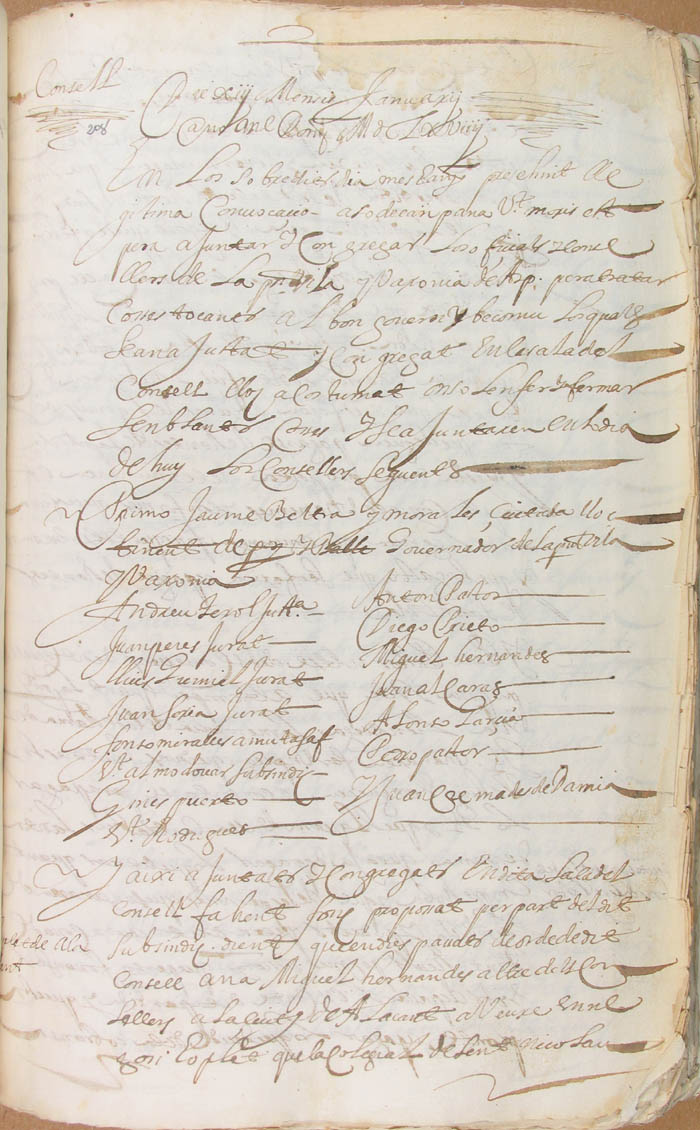 Consell
Die xiij Mensis Januarij
Anno a Nat. Dni M d C L xviiij
208
En Los sobredits dia mes e any presehint lle
gitima Convocacio
pera ajuntar y Congregar Los officials y Conse
llers de La pnt vila y Varonia de Asp. pera tratar
Coses tocants al bon govern y becomu Los quals
se an ajuntat y Congregat en la sala del
Consell lloch acostumat on se solen fer y fermar
senblants Coses y se ajuntaren en lo dia
de huy Los Consellers seguents
Primo Jaume Beltra y morales, Ciutada lloc
tinent de Governador de la pnt vila
y Varonia
Andreu Terol Justa.
Juan peres Jurat
Lluis Gumiel Jurat
Juan Soria Jurat
fonso mirales amutasaf
Vt. almodovar subsindic
Gines puerto
Vt. Rodrigues
Anton Pastor
Diego Prieto
Miguel hernandes
Juan alCaras
Alfonso Garcia
Pedro pastor
y Juan Cremades de Damia
y aixi ajuntats y Congregats en dita sala del
Consell fahent fonc proposat per part del dit
subsindic dient que en dies pasats de orde de dit
Consell ana Miguel hernandes altre dels Con
sellers a la ciutat de Alacant a veure
lo plet que la Colegial de sent nicolau
plet de Ala
cant